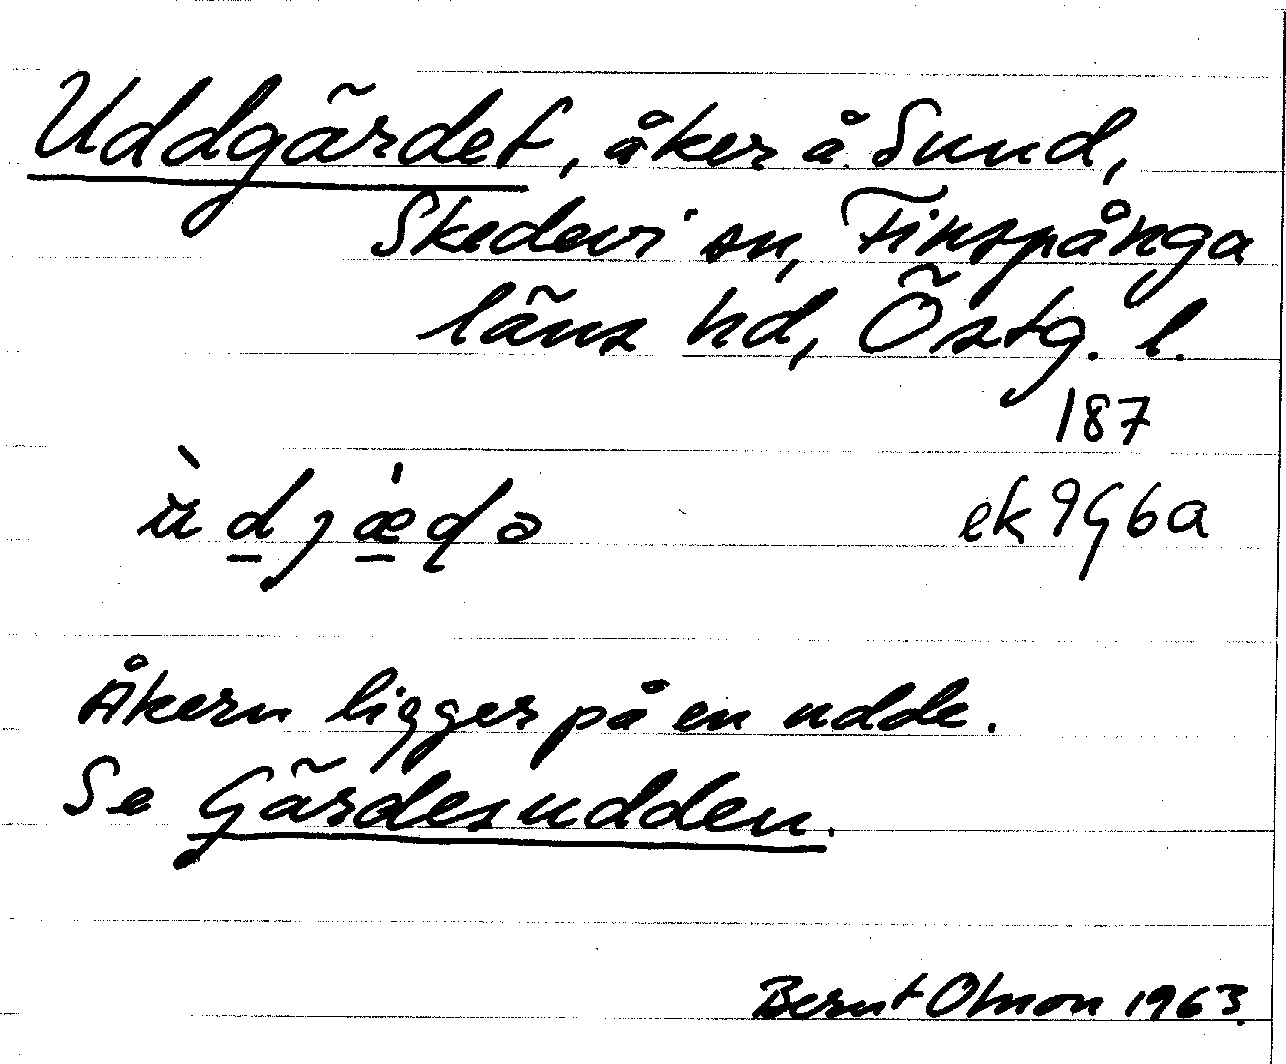 Uddgärdet, åker å Sund,
Skedevi sn, Finspånga
läns hd, Östg. l.
187
ek 9G6a
Åkern ligger på en udde.
Se Gärdesudden.
Bernt Olsson 1963.